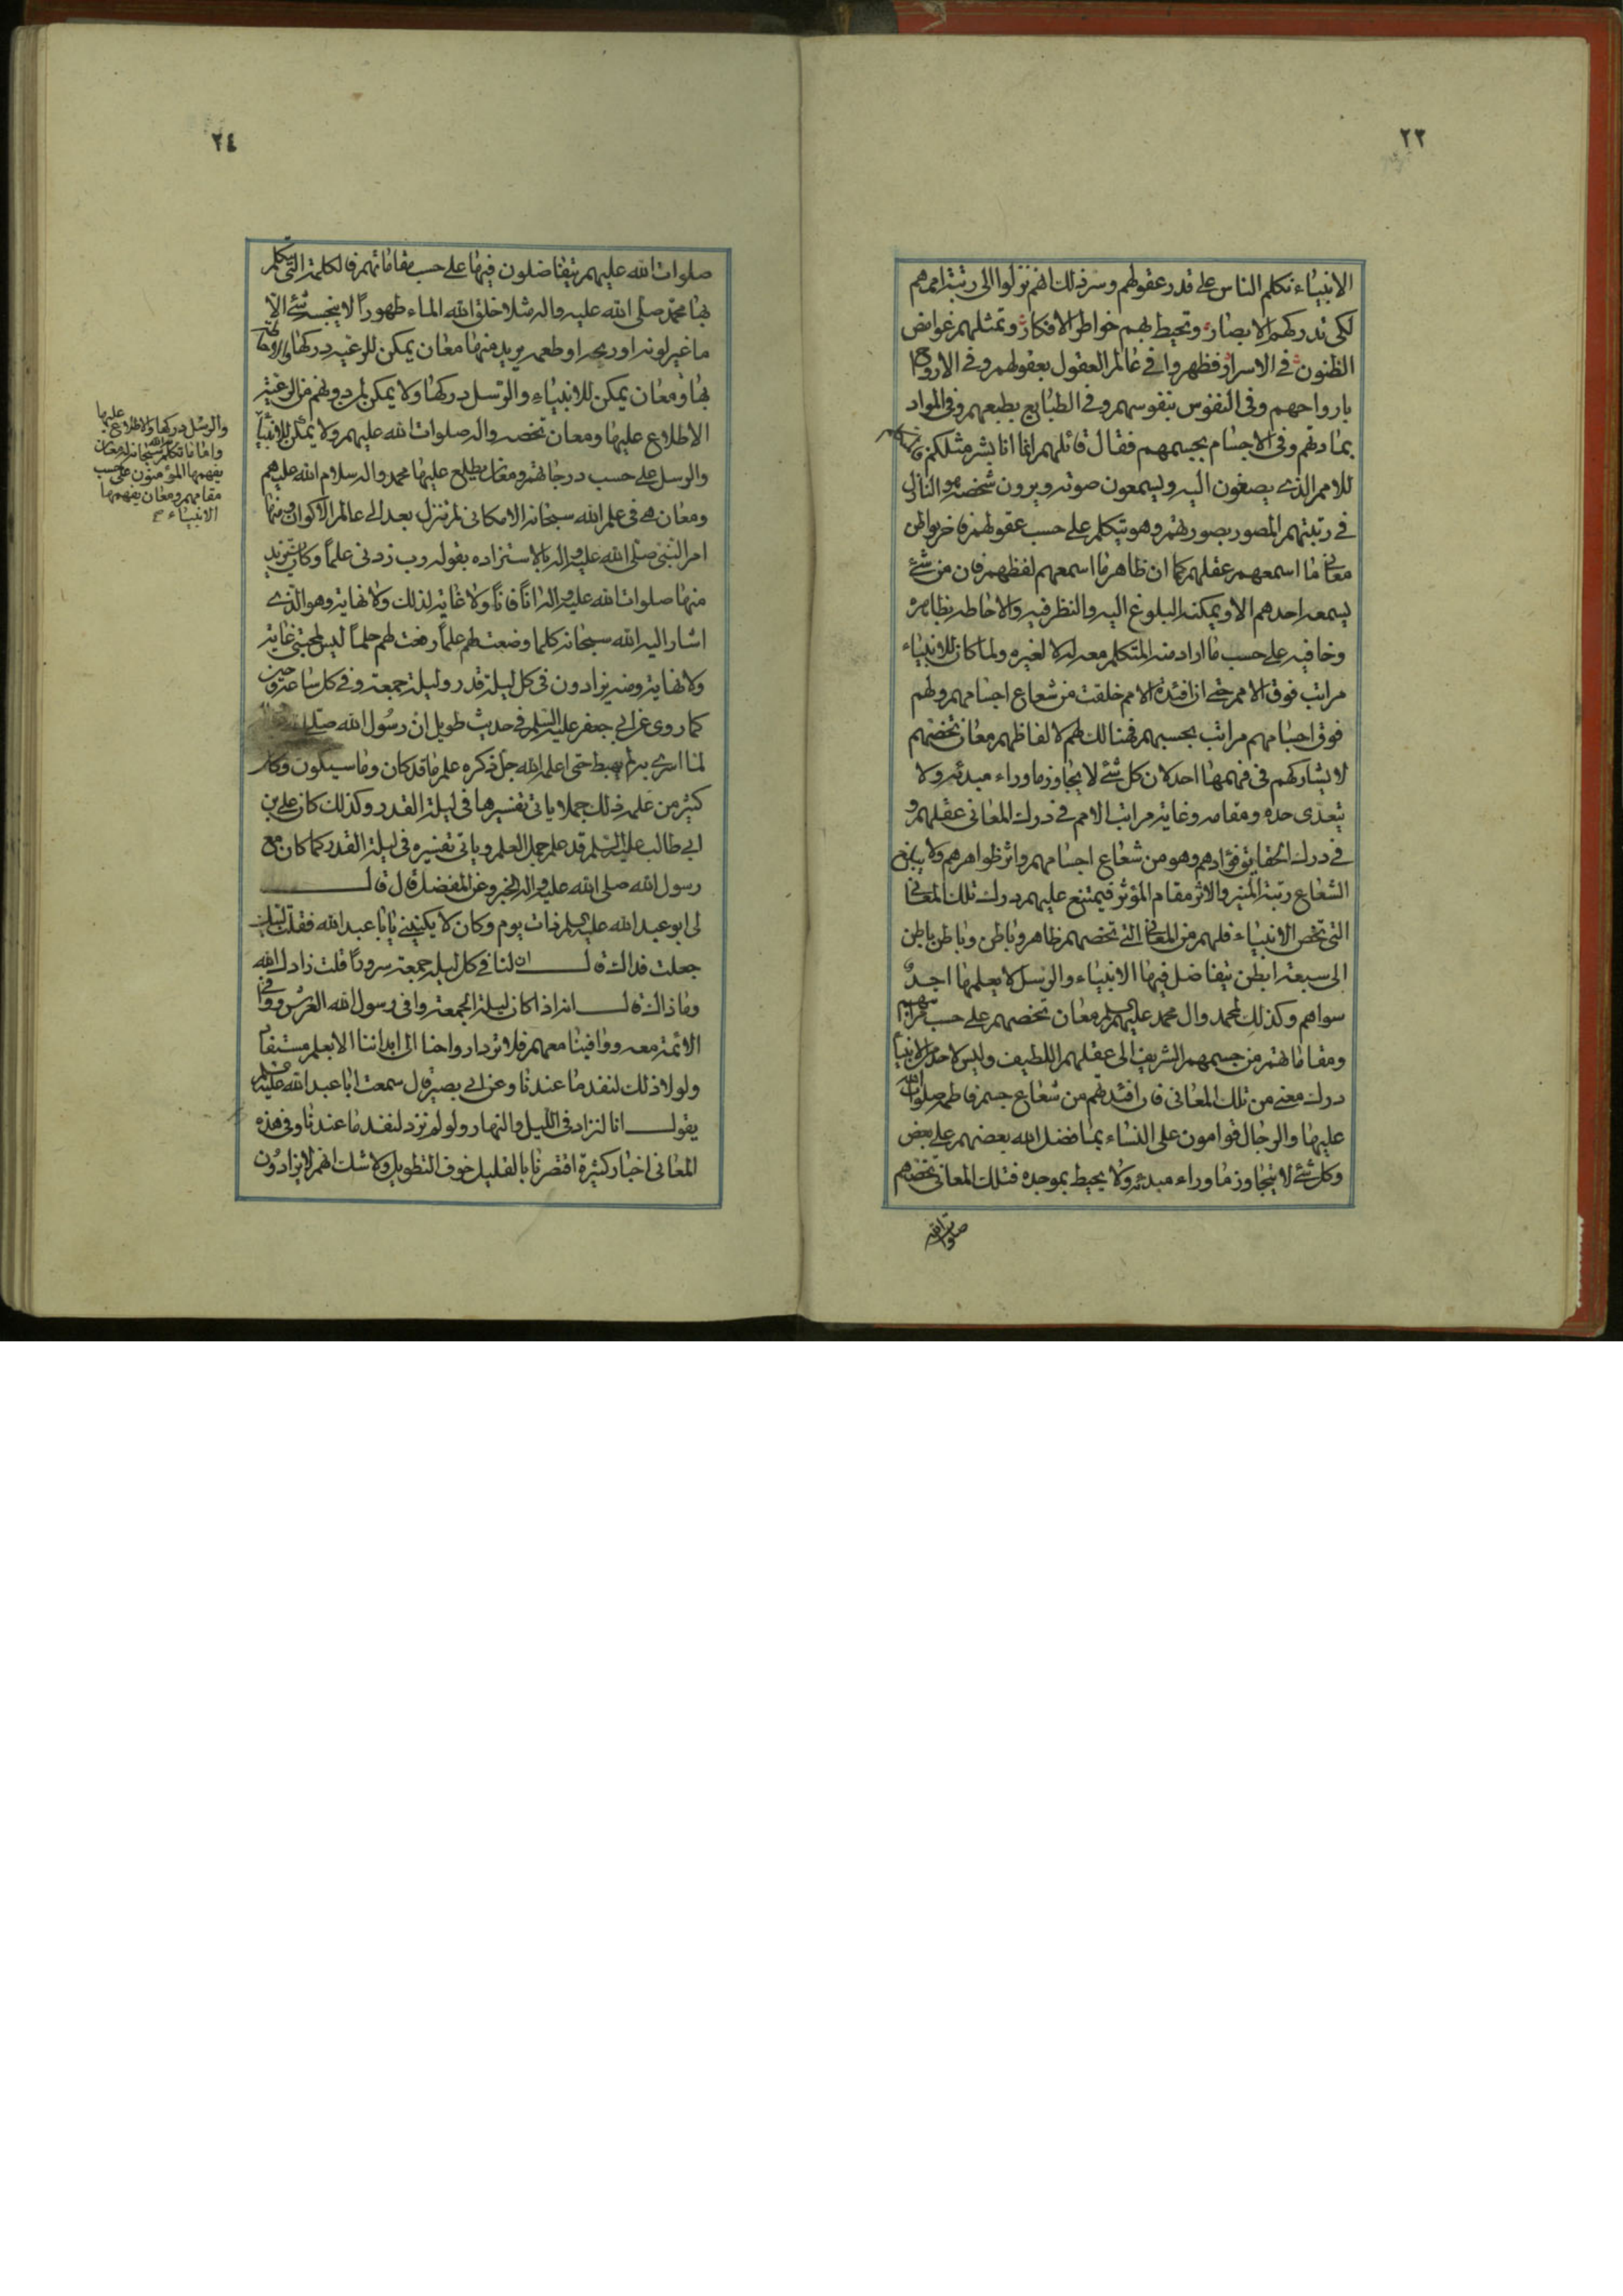 ٢٣
الانبياء نكلم الناس على قدر عقولهم وسر ذلك انهم نزلوا الى رتبة اممهم
لكى تدركهم الابصار وتحيط بهم خواطر الافكار وتمثلهم غوامض
الظنون فى الاسرار فظهروا فى عالم العقول بعقولهم وفى الارواح
بارواحهم وفى النفوس بنفوسهم وفى الطبايع بطبعهم وفى المواد
بمادتهم وفى الاجسام بجسمهم فقال قائلهم انما انا بشر مثلكم
للامم الذى يصغون اليه ويسمعون صوته ويرون شخصه هو النازل
فى رتبتهم المصور بصورتهم وهو يتكلم على حسب عقولهم فاخر بواطن
معانى ما اسمعهم عقلهم كما ان ظاهر ما اسمعهم لفظهم فان من شئ
يسمعه احدهم الا ويمكنه البلوغ اليه والنظر فيه والاحاطه بظاهره
وخافيه على حسب ما اراد منه المتكلم معه له لا لغيره ولما كان للانبياء
مراتب فوق الامم حتى ان افئدة الامم خلقت من شعاع اجسامهم ولهم
فوق اجسامهم مراتب بجسمهم فهنالك لهم لالفاظهم معان تخصهم
لا يشاركهم فى فهمها احد لان كل شئ لا يجاوز ما وراء مبدئه ولا
يتعدى حده ومقامه وغاية مراتب الامم فى درك المعانى عقلهم و
فى درك الحقايق فؤادهم وهو من شعاع اجسامهم واثر ظواهرهم ولا يبلغ
الشعاع رتبة المنير والاثر مقام المؤثر فيمتنع عليهم درك تلك المعانى
التى تخص الانبياء فلهم من المعانى التى تخصهم ظاهر وباطن وباطن باطن
الى سبعة ابطن يتفاضل فيها الانبياء والرسل لا يعلمها احد
سواهم وكذلك لمحمد وال محمد عليهم السلم معان تخصهم على حسب مراتبهم
ومقاماتهم من جسمهم الشريف الى عقلهم اللطيف وليس لاحد من الانبيا
درك معنى من تلك المعانى فان افئدتهم من شعاع جسم فاطمه صلوات الله
عليها والرجال قوامون على النساء بما فضل الله بعضهم على بعض
وكل شئ لا يتجاوز ما وراء مبدئه ولا يحيط بموجده فتلك المعانى تخصهم
صلوات الله
٢٤
صلوات الله عليهم يتفاضلون فيها على حسب مقاماتهم فالكلمة التى تكلم
بها محمد صلى الله عليه واله مثلا خلق الله الماء طهوراً لا ينجسه شئ الا
ما غير لونه او ريحه او طعمه يريد منها معان يمكن للرعيه دركها
بها ومعان يمكن للانبياء والرسل دركها ولا يمكن لمن دونهم من الرعية
الاطلاع عليها ومعان تخصه واله صلوات الله عليهم ولا يمكن للانبيآ
والرسل على حسب درجاتهم ومعان يطلع عليها محمد واله سلام الله عليهم
ومعان هى فى علم الله سبحانه الامكانى لم تنزل بعد الى عالم الاكوان ومنها
امر النبى صلى الله عليه واله بالاستزاده بقوله رب زدنى علماً وكان يزيد
منها صلوات الله عليه واله اناً فاناً ولا غاية لذلك ولا نهاية وهو الذى
اشار اليه الله سبحانه كلما وضعت لهم علماً رفعت لهم حلماً ليس لمحبتى غاية
ولا نهاية ومنه يزادون فى كل ليلة قدر وليلة جمعة وفى كل ساعة وحين
كما روى عن ابى جعفر عليه السلم فى حديث طويل ان رسول الله صلى
لما اسرى به لم يهبط حتى اعلمه الله جل ذكره علم ما قد كان وما سيكون وكان
كثير من علمه ذلك جملا ياتى تفسيرها فى ليلة القدر وكذلك كان على بن
ابى طالب عليه السلم قد علم جمل العلم وياتى تفسيره فى ليلة القدر كما كان مع
رسول الله صلى الله عليه واله الخبر وعن المفضل قال قال
لى ابو عبد الله عليه السلم ذات يوم وكان لا يكنينى يابا عبد الله فقلت لبيك
جعلت فداك قال ان لنا فى كل ليلة جمعة سروراً قلت زادك الله
وما ذاك قال انه اذا كان ليلة الجمعة وافى رسول الله العرش ووافى
الائمة معه ووافينا معهم فلا ترد ارواحنا الى ابداننا الا بعلم مستفاد
ولولا ذلك لنفد ما عندنا وعن ابى بصير قال سمعت ابا عبد الله عليه السلم
يقول انا لنزاد فى الليل والنهار ولو لم نزد لنفد ما عندنا وفى هذه
المعانى اخبار كثيرة اقتصرنا بالقليل خوف التطويل ولا شك انهم لا يزادون
والرسل دركها والاطلاع عليها
واما ما تكلم الله سبحانه له معان
يفهمها المؤمنون على حسب
مقامهم ومعان يفهمها
الانبياء صح